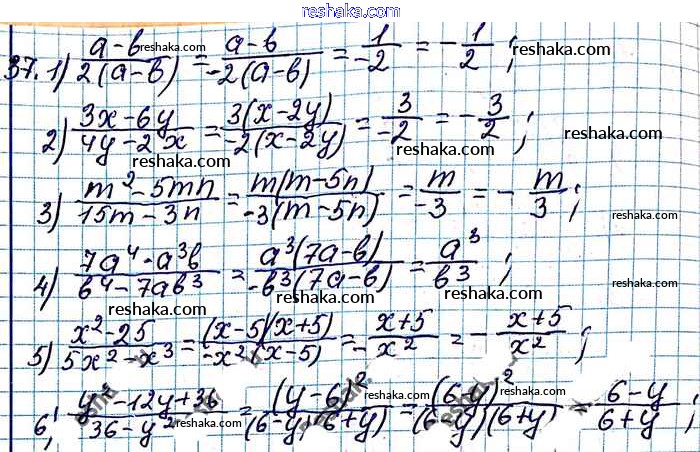 reshaka.com
37. 1) (a-b)/(2(a-b)) = (a-b)/(-2(a-b)) = 1/(-2) = -1/2;
reshaka.com reshaka.com reshaka.com
2) (3x-6y)/(4y-2x) = (3(x-2y))/(-2(x-2y)) = 3/(-2) = -3/2;
reshaka.com reshaka.com reshaka.com
3) (m²-5mn)/(15m-3n) = (m(m-5n))/(-3(m-5n)) = m/(-3) = -m/3;
reshaka.com reshaka.com reshaka.com
4) (7a⁴-a³b)/(b⁴-7ab³) = (a³(7a-b))/(-b³(7a-b)) = a³/b³;
reshaka.com reshaka.com reshaka.com
5) (x²-25)/(5x²-x³) = ((x-5)(x+5))/(-x²(x-5)) = -(x+5)/x² = -(x+5)/x²;
reshaka.com reshaka.com reshaka.com
6) (y²-12y+36)/(36-y²) = (y-6)²/((6-y)(6+y)) = (6-y)²/((6-y)(6+y)) = (6-y)/(6+y);
reshaka.com